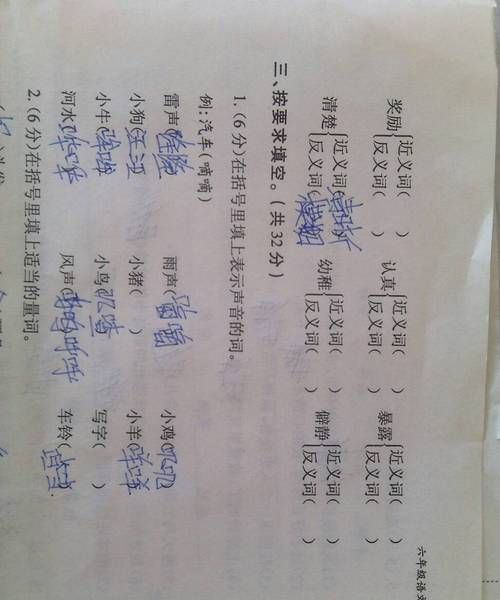 六年级语
近义词( ) 近义词( ) 近义词( )
奖励 认真 暴露
反义词( ) 反义词( ) 反义词( )
近义词(清晰) 近义词( ) 近义词( )
清楚 幼稚 僻静
反义词(模糊) 反义词( ) 反义词( )
三、按要求填空。(共32分)
1.(6分)在括号里填上表示声音的词。
例:汽车(嘀嘀)
雷声(隆隆) 雨声( 小鸡(叽叽
小狗(汪汪 小猪( ) 小羊(咩咩
小牛( 小鸟(叽喳 写字( )
河水(哗哗 风声( 车铃(
2.(6分)在括号里填上适当的量词。